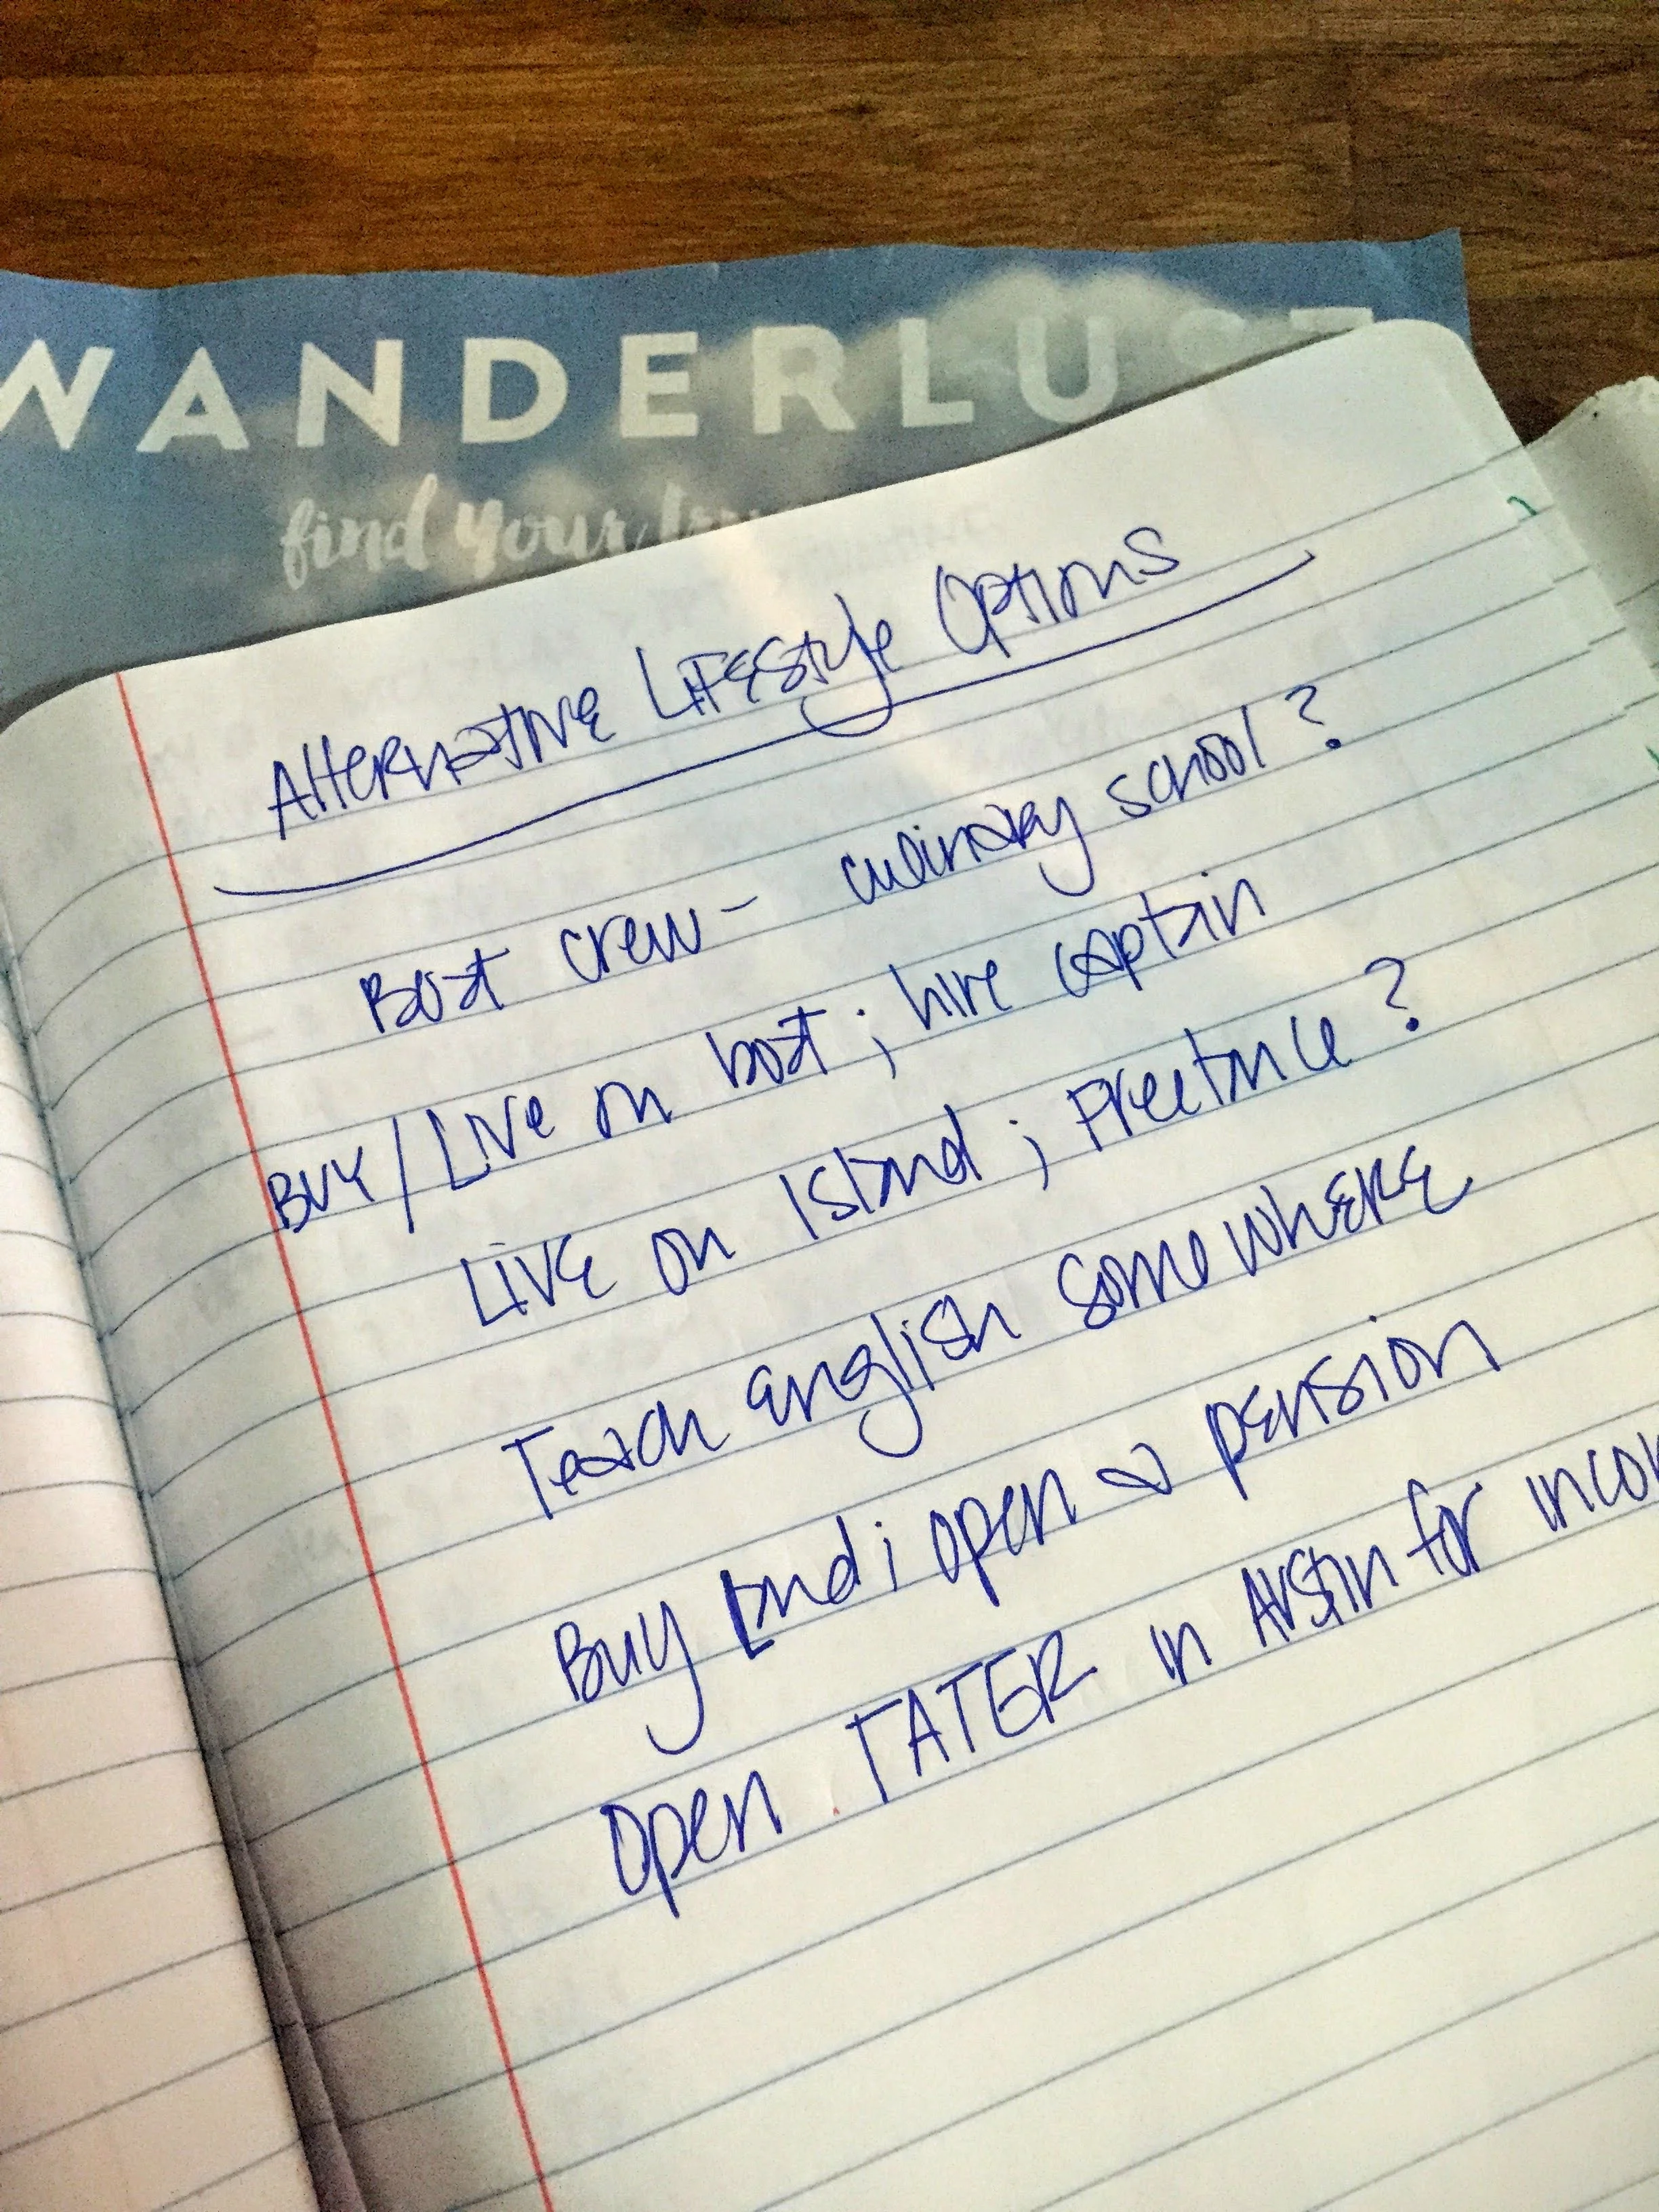 WANDERLU
find your
Alternative Lifestyle Options
Boat crew - culinary school?
Buy / Live on boat; hire captain
Live on Island; Freelance?
Teach english somewhere
Buy Land; open a pension
Open TATER in Austin for incom